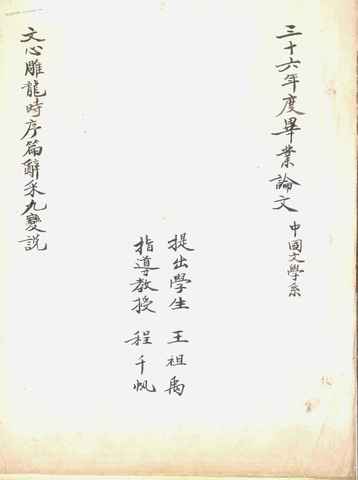 三十六年度畢業論文 中國文學系
提出學生 王祖禹
指導教授 程千帆
文心雕龍時序篇辭采九變説